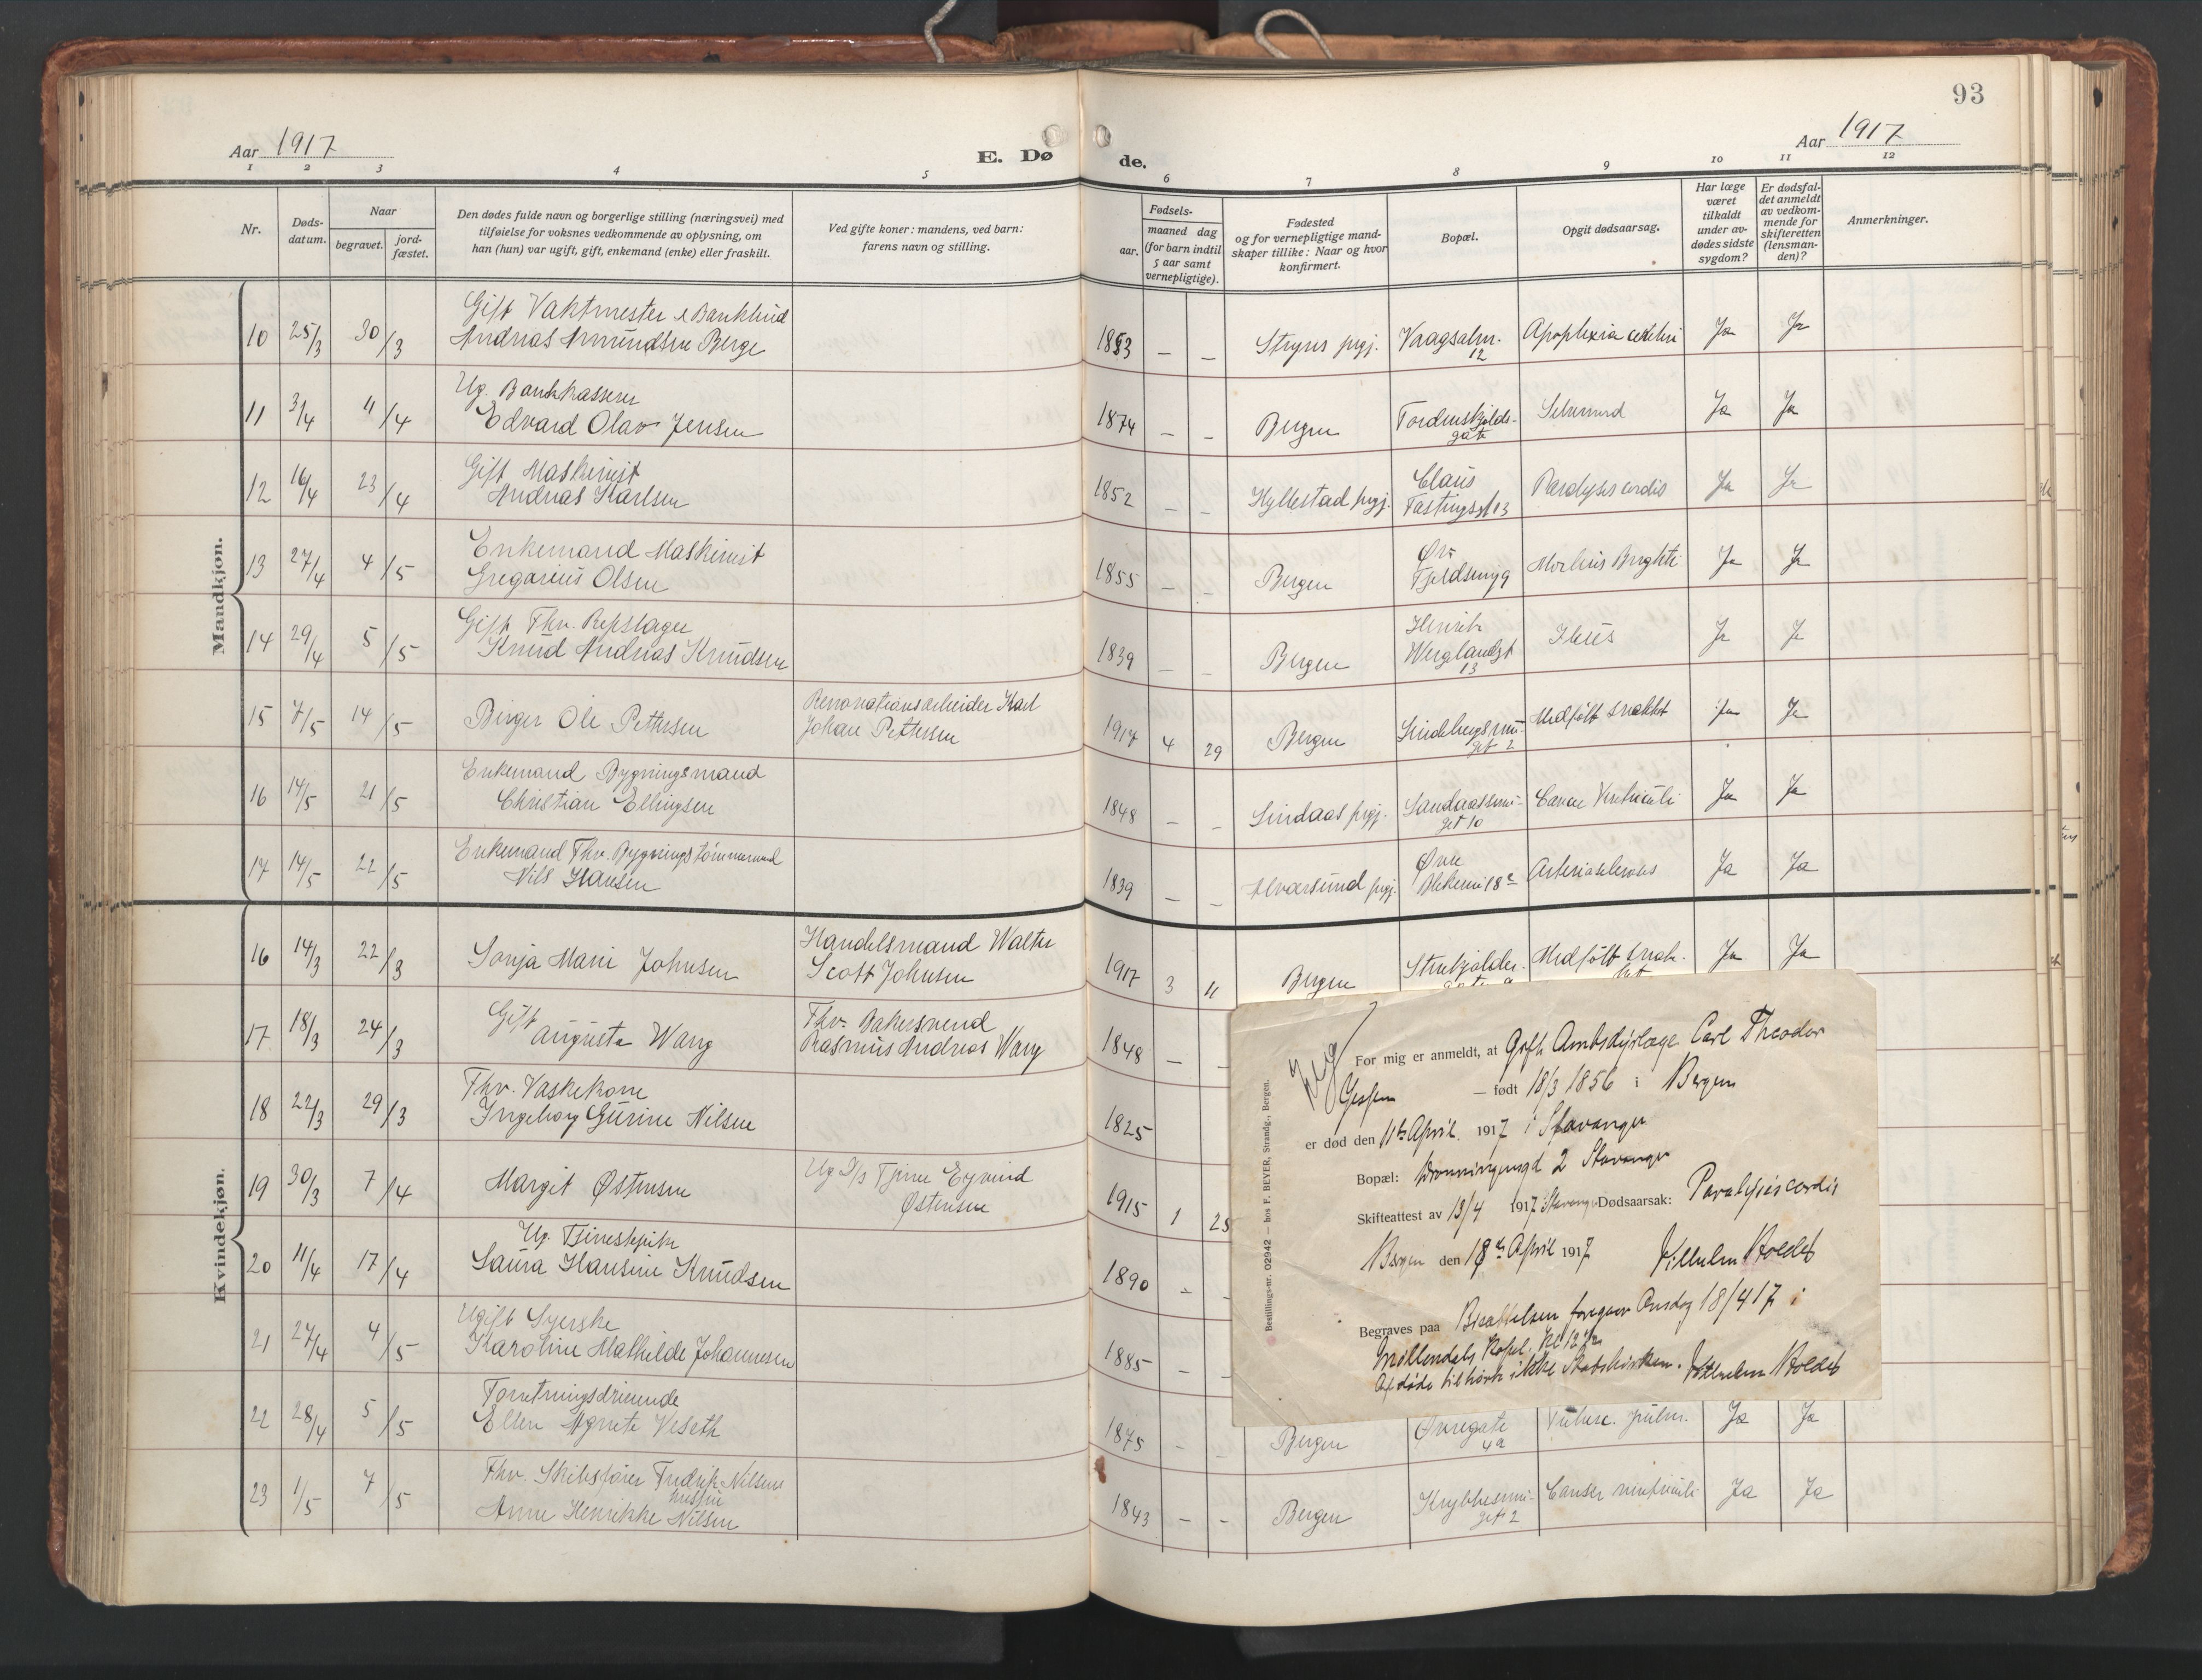 93
Aar 1917
E. Dø de.
Aar 1917
1 2 3 4 5 6 7 8 9 10 11 12
Nr.
Døds-
datum.
Naar
begravet.
jord-
fæstet.
Den dødes fulde navn og borgerlige stilling (næringsvei) med
tilføielse for voksnes vedkommende av oplysning, om
han (hun) var ugift, gift, enkemand (enke) eller fraskilt.
Ved gifte koner: mandens, ved barn:
farens navn og stilling.
Fødsels-
aar.
maaned dag
(for barn indtil
5 aar samt
vernepligtige).
Fødested
og for vernepligtige mand-
skaper tillike: Naar og hvor
konfirmert.
Bopæl.
Opgit dødsaarsag.
Har læge
været
tilkaldt
under av-
dødes sidste
sygdom?
Er dødsfal-
det anmeldt
av vedkom-
mende for
skifteretten
(lensman-
den)?
Anmerkninger.
Mandkjøn.
Gift Vaktmester
10 25/3 30/3 Andreas Amundsen Berge 1853 – – Stryns prgj. Vaagsalm. 12 Apoplexia cerebri Ja Ja
Ug. Bankkasserer
11 3/4 11/4 Edvard Olav Jensen 1874 – – Bergen Tordenskjolds-gate Selvmord Ja Ja
Gift Maskinist
12 16/4 23/4 Andreas Karlsen 1852 – – Hyllestad prgj. Claus Fastingsgt 13 Paralysis cordis Ja Ja
Enkemand Maskinist
13 27/4 4/5 Gregorius Olsen 1855 – – Bergen Øv. Fjeldsmug Morbus Brightii Ja Ja
Gift Fhv. Repslager
14 29/4 5/5 Knud Andreas Knudsen 1839 – – Bergen Henrik Wergelandsgt 13 Ileus Ja Ja
Renovationsarbeider Karl
15 7/5 14/5 Birger Ole Pettersen Johan Pettersen 1917 4 29 Bergen Lindebergsmu-get 2 Medfødt svakhet Ja Ja
Enkemand Bygningsmand
16 14/5 21/5 Christian Ellingsen 1848 – – Lindaas prgj. Sandaassmu-get 10 Cancer Ventriculi Ja Ja
Enkemand Fhv. Bygningstømmermand
17 14/5 22/5 Nils Hansen 1839 – – Alversund prgj. Øvre Blekevei 18 Arteriosclerosis Ja Ja
Kvindekjøn.
Handelsmand Walter
16 14/3 22/3 Sonja Marie Johnsen Scott Johnsen 1917 3 11 Bergen Medfødt svak-het Ja Ja
Gift Fhv. Bakersvend
17 18/3 24/3 Augusta Wang Rasmus Andreas Wang 1848 –
Fhv. Vaskekone
18 22/3 29/3 Ingeborg Gurine Nilsen 1825
Eyvind
19 30/3 7/4 Margit Østensen Østensen 1915 1 25
Ug. Tjenestepike
20 11/4 17/4 Laura Hansine Knudsen 1890 –
Ugift Syerske
21 27/4 4/5 Karoline Mathilde Johannesen 1885 – –
Forretningsdrivende
22 28/4 5/5 Ellen Agnete Veseth 1875 – – Bergen Øvregate 4a Tuberc. pulm. Ja Ja
Fhv. Skibsfører Fredrik Nilsens
hustru
23 1/5 7/5 Anne Henrikke Nilsen 1843 – – Bergen Krybbesmu-get 2 Cancer ventriculi Ja Ja
Bestillings-nr. 02942 — hos F. BEYER, Strandg., Bergen.
For mig er anmeldt, at Gift Amtsdyrlæge Carl Theodor
Jessen — født 18/3 1856 i Bergen
er død den 11te April 1917 i Stavanger
Bopæl: Dronningensgd 2 Stavanger
Skifteattest av 13/4 1917 Stavanger Dødsaarsak: Paralysis cordis
Bergen den 18de April 1917 Vilhelm
Begraves paa Bisættelsen foregaar Onsdag 18/4 17 i
Møllendals Kapel. Kl 12 1/2
Afdøde tilhørte ikke Statskirken. Vilhelm